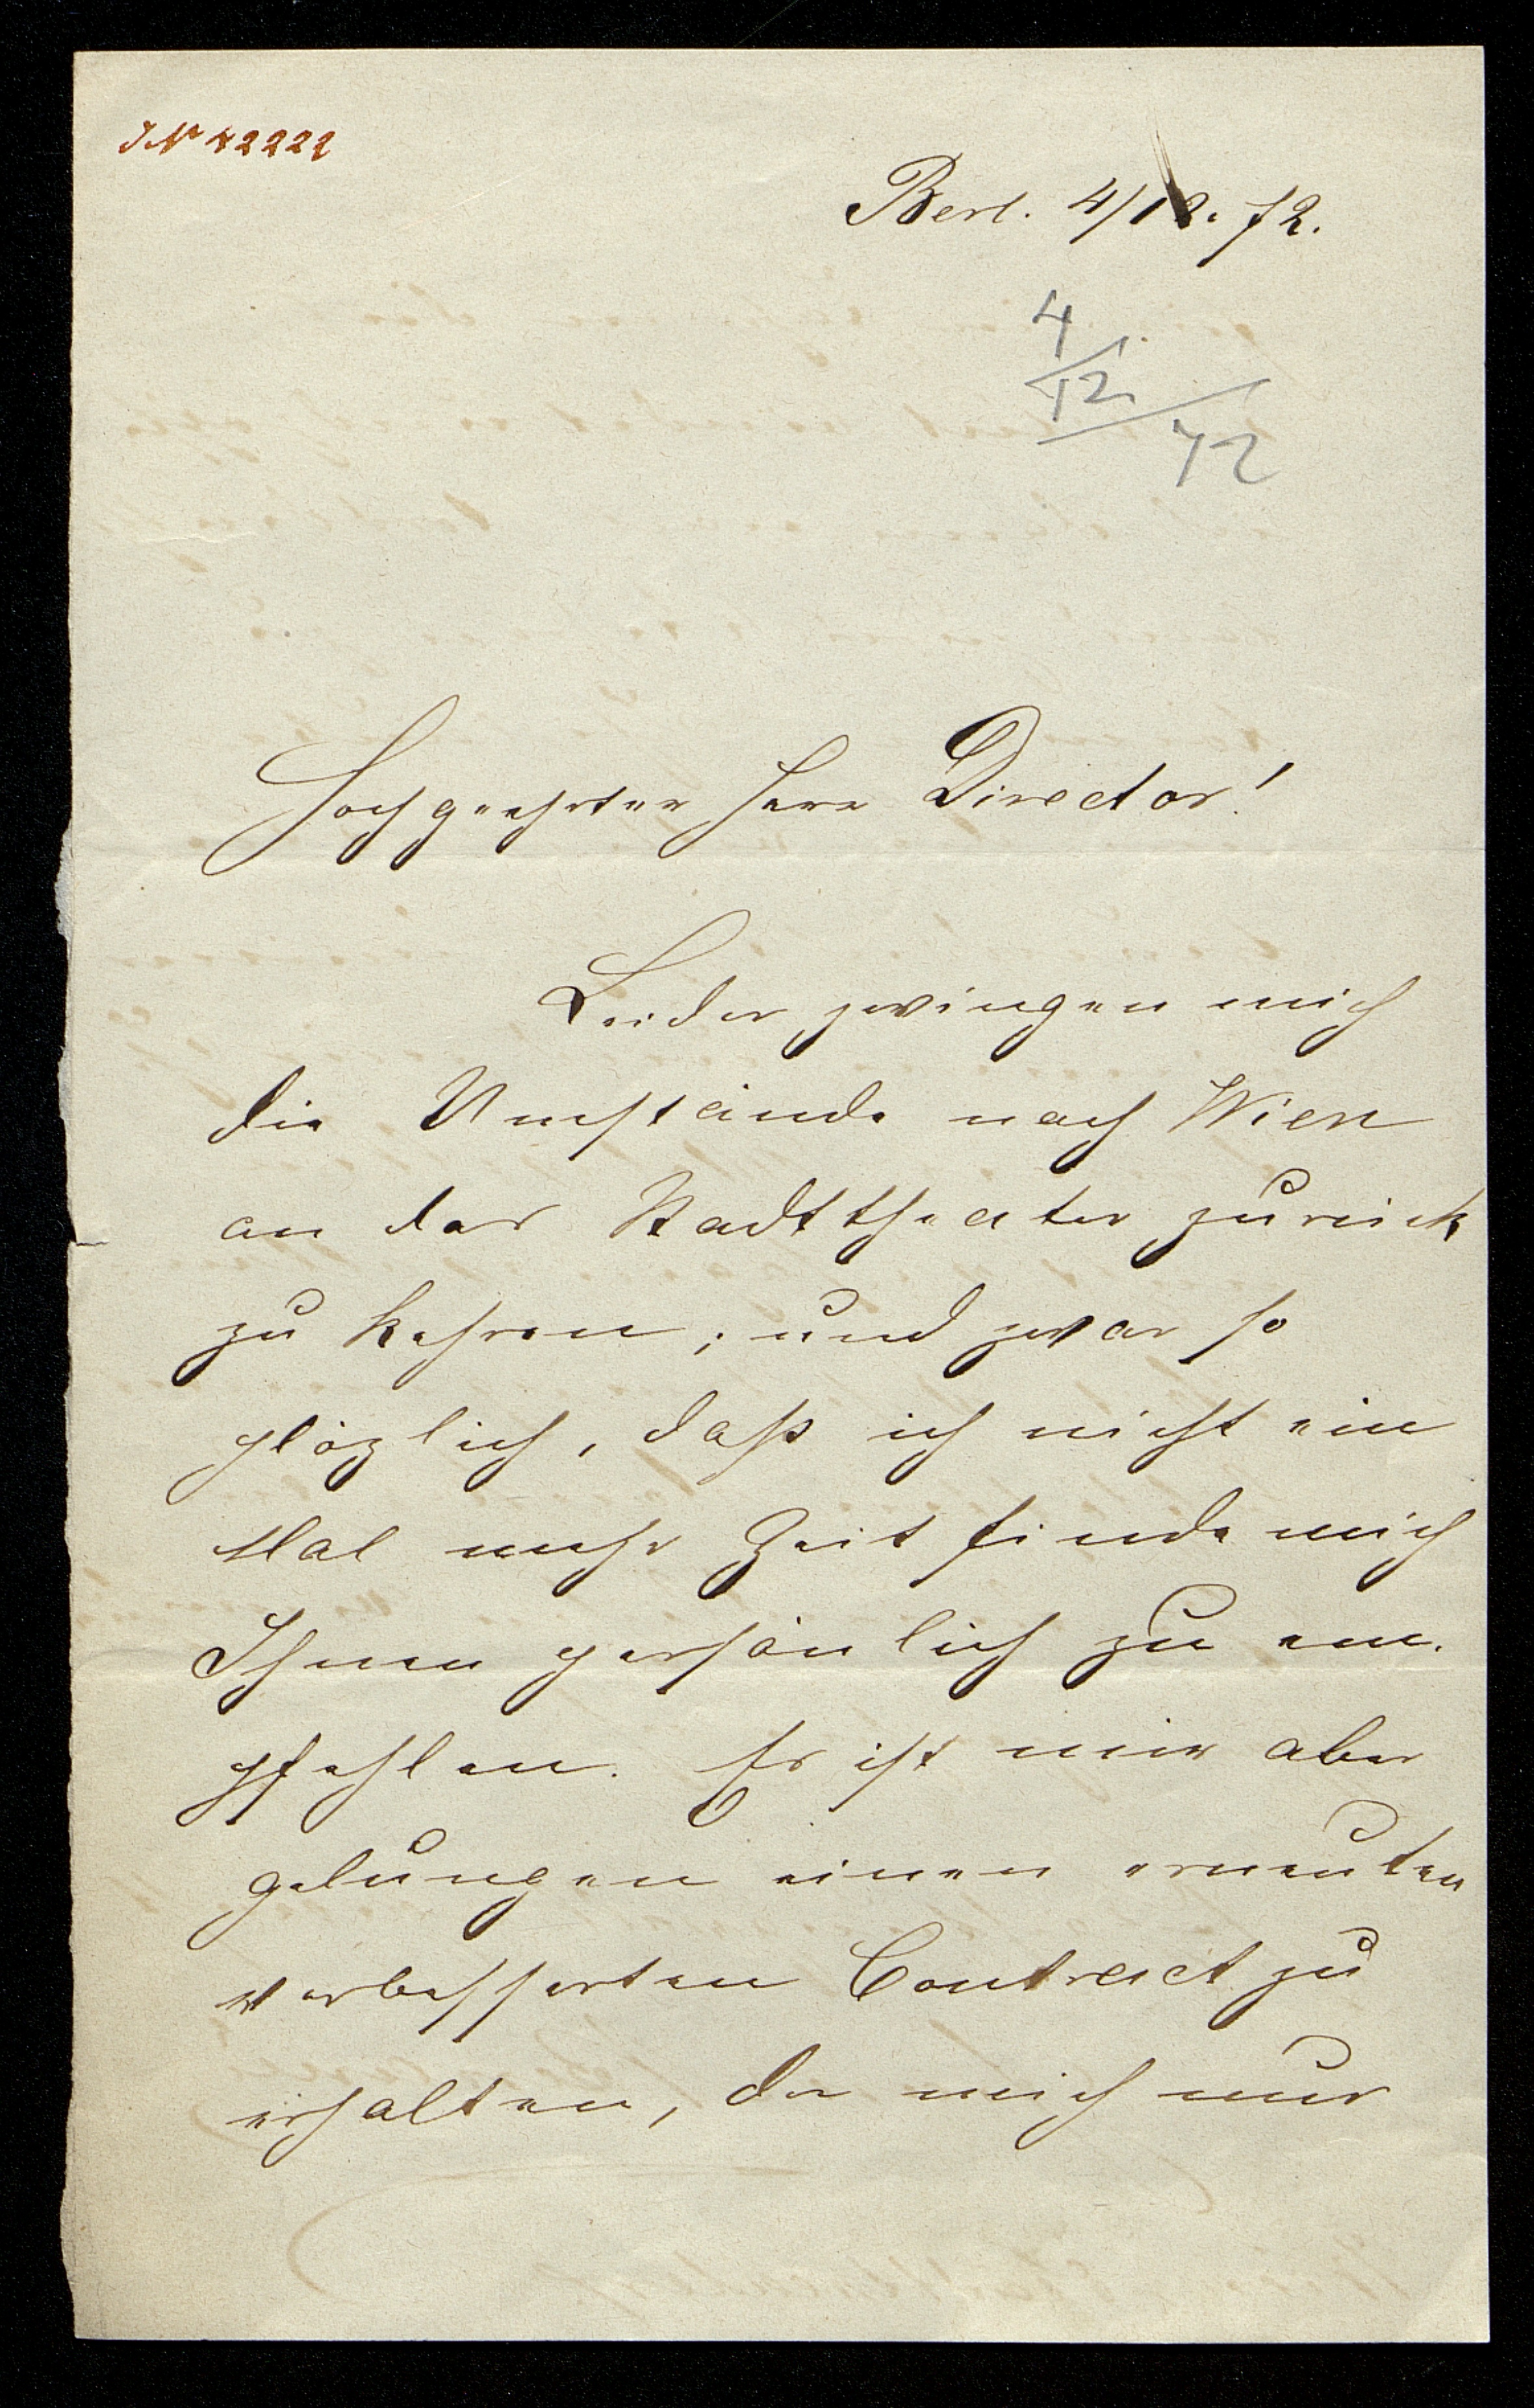 JN 42222
Berl. 4/12. 72.
4/12/72
Hochgeehrter Herr Director!
Leider zwingen mich
die Umstände nach Wien
an das Stadttheater zurück
zu kehren; und zwar so
plözlich, daß ich nicht ein
Mal mehr Zeit finde mich
Ihnen persönlich zu em-
pfehlen. Es ist mir aber
gelungen einen erneuten
verbesserten Contract zu
erhalten, der mich nur